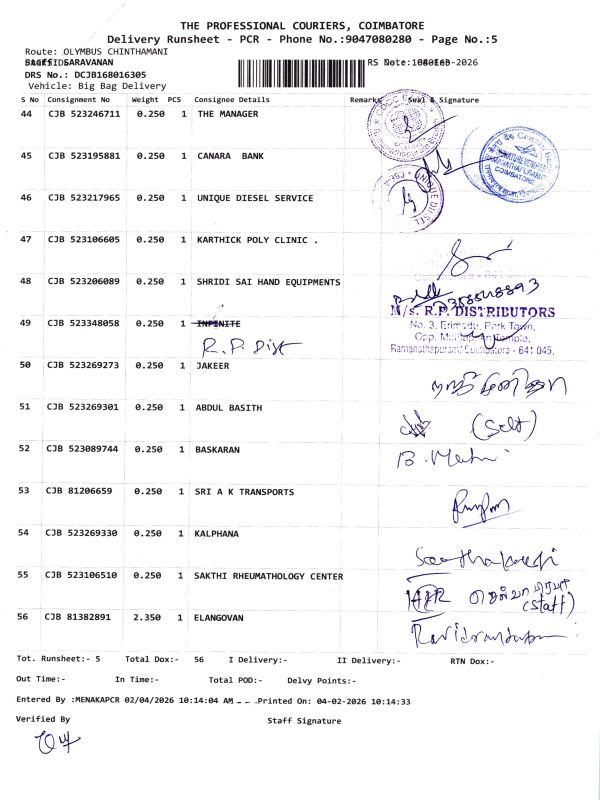 THE PROFESSIONAL COURIERS, COIMBATORE
Delivery Runsheet - PCR - Phone No.:9047080280 - Page No.:5
Route: OLYMBUS CHINTHAMANI
SARAVANAN
DRS No.: DCJB168016305
Vehicle: Big Bag Delivery
S No Consignment No Weight PCS Consignee Details Remarks Seal & Signature
44 CJB 523246711 0.250 1 THE MANAGER
45 CJB 523195881 0.250 1 CANARA BANK
46 CJB 523217965 0.250 1 UNIQUE DIESEL SERVICE
47 CJB 523106605 0.250 1 KARTHICK POLY CLINIC .
48 CJB 523206089 0.250 1 SHRIDI SAI HAND EQUIPMENTS
M/s. R.P. DISTRIBUTORS
49 CJB 523348058 0.250 1 INFINITE
No. 3, Park Town,
R.P. Dist
Ramanathapuram, Coimbatore - 641 045.
50 CJB 523269273 0.250 1 JAKEER
51 CJB 523269301 0.250 1 ABDUL BASITH
(Self)
52 CJB 523089744 0.250 1 BASKARAN
53 CJB 81206659 0.250 1 SRI A K TRANSPORTS
54 CJB 523269330 0.250 1 KALPHANA
55 CJB 523106510 0.250 1 SAKTHI RHEUMATHOLOGY CENTER
(staff)
56 CJB 81382891 2.350 1 ELANGOVAN
Tot. Runsheet:- 5 Total Dox:- 56 I Delivery:- II Delivery:- RTN Dox:-
Out Time:- In Time:- Total POD:- Delvy Points:-
Entered By :MENAKAPCR 02/04/2026 10:14:04 AM Printed On: 04-02-2026 10:14:33
Verified By Staff Signature